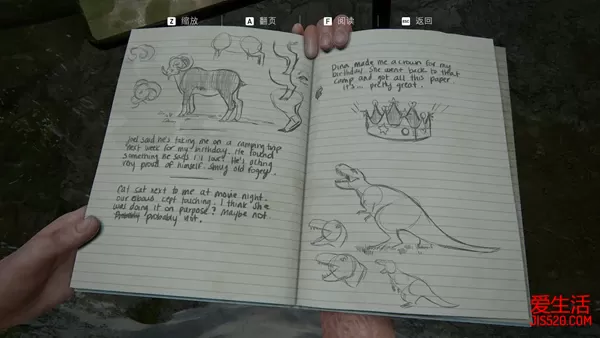 Z 缩放
A 翻页
F 阅读
esc 返回
Joel said he's taking me on a camping trip
next week for my birthday. He found
something he says I'll love. He's acting
very proud of himself. Smug old fogey.
Cat sat next to me at movie night.
Our elbows kept touching. I think she
was doing it on purpose? Maybe not.
probably not.
Dina made me a crown for my
birthday. She went back to that
camp and got all this paper
it's... pretty great.
爱生活
JS520.COM